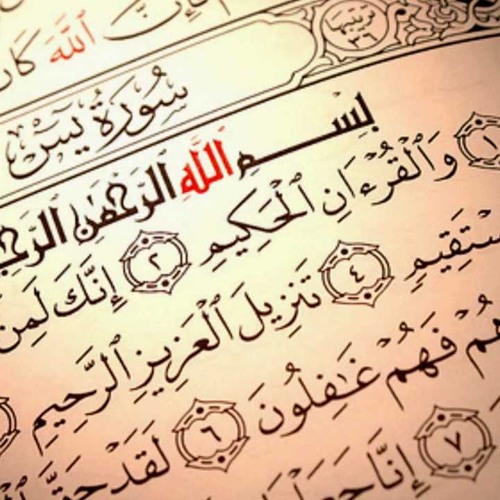 ٱللَّهَ كَا
سُورَةُ يسٓ
بِسْمِ ٱللَّهِ ٱلرَّحْمَٰنِ ٱلرَّحِ
١ وَٱلْقُرْءَانِ ٱلْحَكِيمِ ٢ إِنَّكَ لَمِنَ
سْتَقِيمٍ ٤ تَنزِيلَ ٱلْعَزِيزِ ٱلرَّحِيمِ
هُمْ فَهُمْ غَٰفِلُونَ ٦ لَقَدْ حَقَّ
٧ إِنَّا جَعَلْنَا